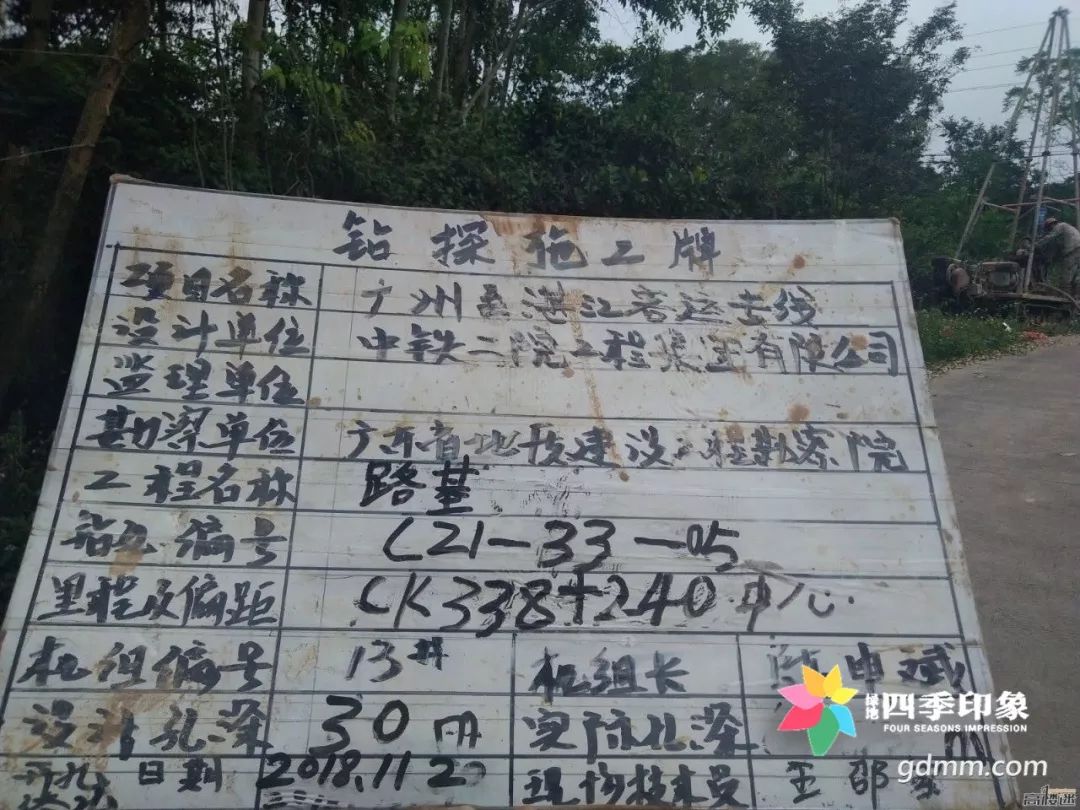 钻探施工牌
项目名称 广州至湛江客运专线
设计单位 中铁二院工程集团有限公司
监理单位
勘察单位 广东省地质建设工程勘察院
工程名称 路基
钻孔编号 CZ1-33-05
里程及偏距 CK338+240 中心
机组编号 13# 机组长 申斌
设计孔深 30m 实际孔深
开孔日期 2018.11.2 现场技术员 王
绿地 四季印象
FOUR SEASONS IMPRESSION
gdmm.com
高楼迷